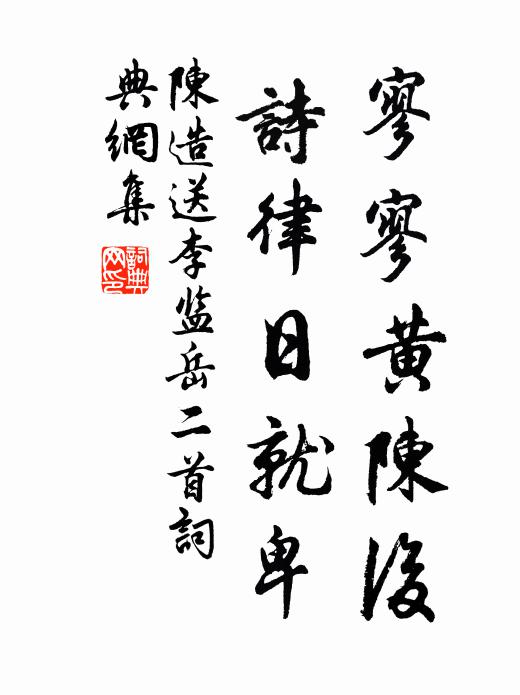 寥寥黄陳後
詩律日就卑
陳造送李监岳二首詞
典網集
詞典网印